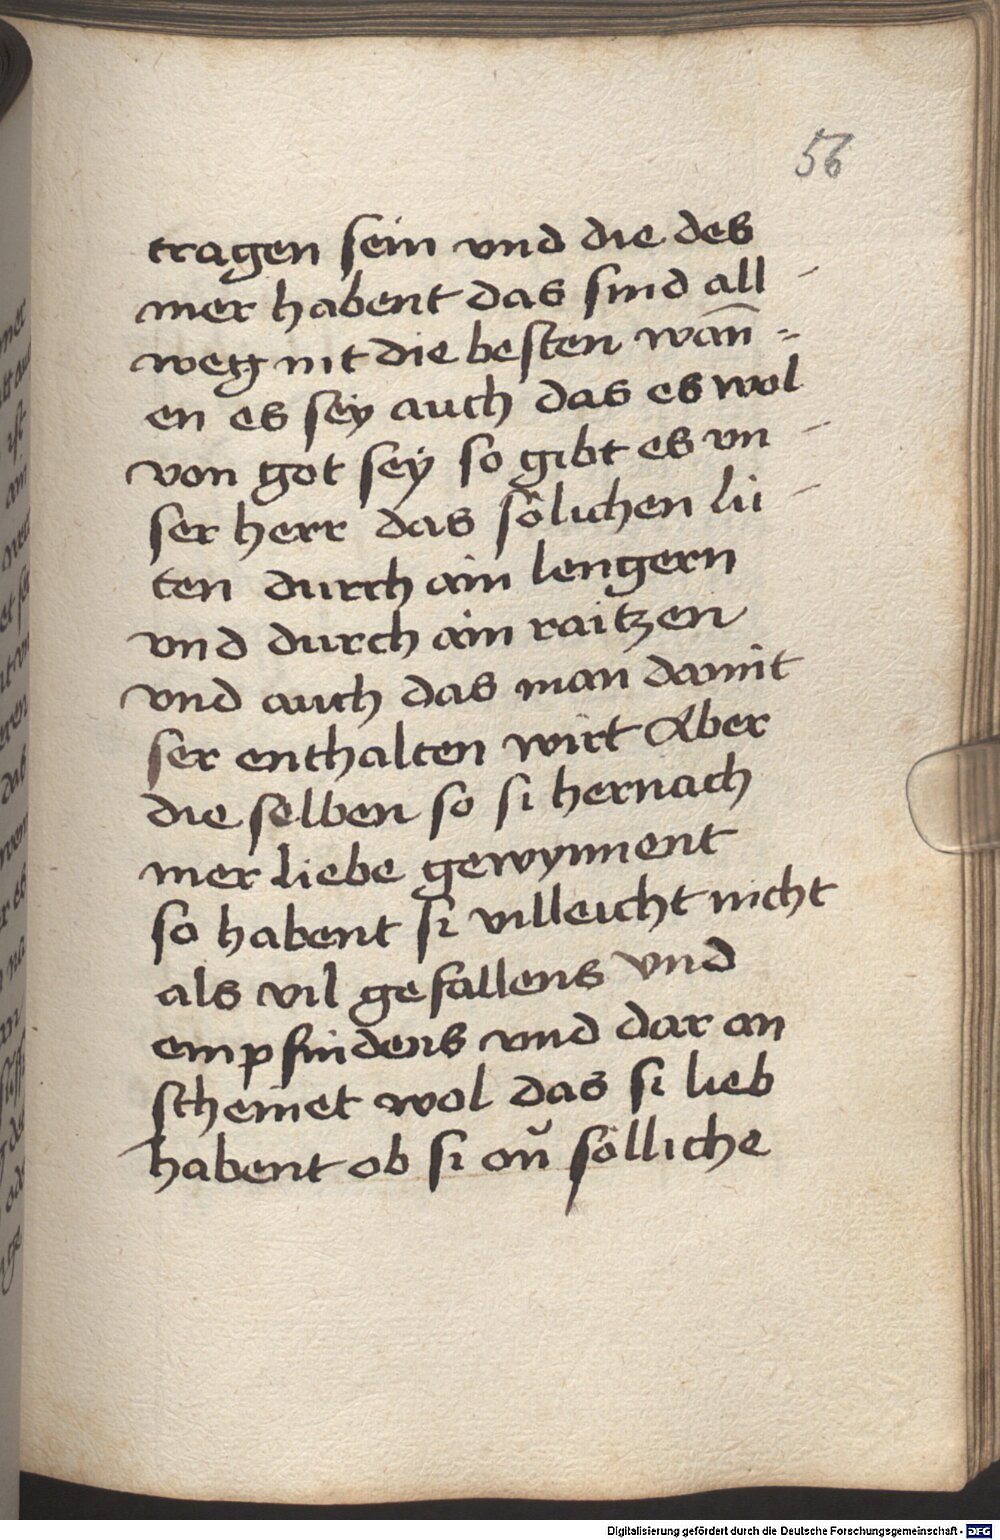 56
tragen sein vnd die des
mer habent das sind all -
weg nit die besten wan̄ =
en es sey auch das es wol
von got seÿ so gibt es vn -
ser herr das sölichen lü -
ten durch ain lengern
vnd durch ain raitzen
vnd auch das man damit
ser enthalten wirt Aber
die selben so si hernach
mer liebe gewynnent
so habent si villeicht nicht
als vil gefallens vnd
empfindens vnd dar an
scheinet wol das si lieb
habent ob si on̆ sölliche
Digitalisierung gefördert durch die Deutsche Forschungsgemeinschaft - DFG